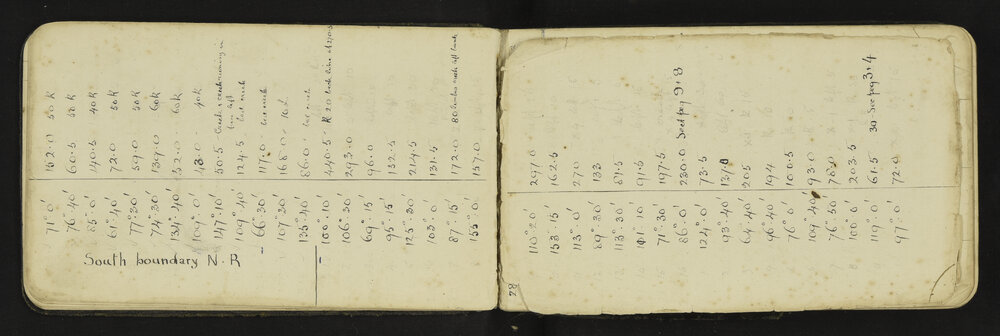 South boundary N.R
71°.0' 162.0 50 K
76°.40' 60.5 50 K
85°.0' 140.5 40 K
61°.40' 72.0 50 K
77°.20' 59.0 50 K
74°.30' 139.0 60 K
134°.40' 52.0 60 K
104°.0' 43.0 40 K
147°.10' 50.5 Creek
109°.40' 124.5 last creek
66°.30' 117.0 last creek
107°.20' 168.0
135°.40' 86.0
100°.10' 440.5 R 20
106°.20' 293.0
69°.15' 96.0
95°.15' 132.5
125°.30' 214.5
103°.0' 131.5
87°.15' 172.0 80
155°.0' 157.0
28
110°.20' 297.0
153°.15' 162.5
113°.0' 270
89°.30' 133
113°.30' 81.5
101.10' 91.5
71°.30' 197.5
86°.0' 230.0 See pag 9.8
124°.0' 73.5
93°.40' 137.0
64°.40' 205
96°.40' 194
76°.0' 100.5
109°.40' 93.0
76°.50' 78.0
100°.0' 203.5
119°.0' 61.5 30 See pag 3.4
97°.0' 72.0